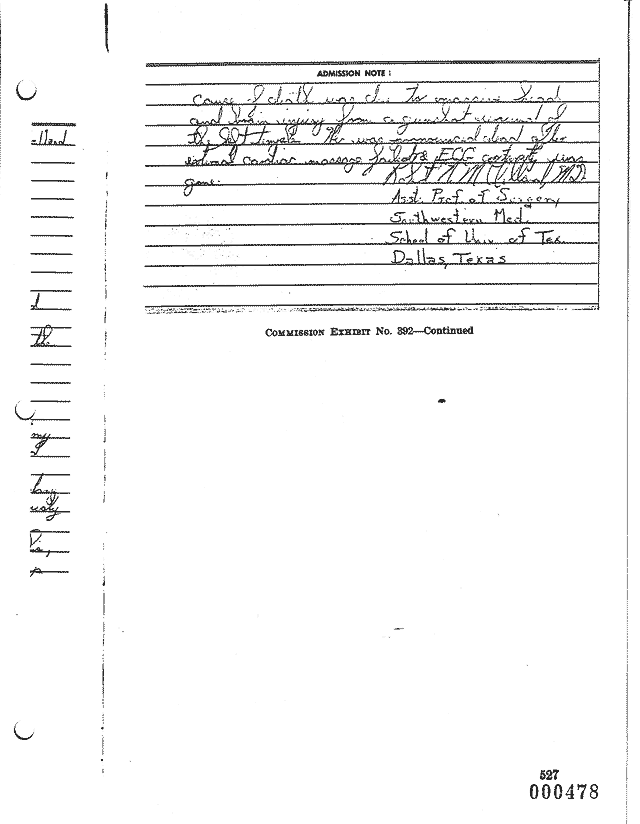 ADMISSION NOTE:
cause of death was due to massive head
and brain injury from a gunshot wound of
the left temple. He was pronounced dead after
external cardiac massage failed & ECG activity was
gone.
Robert N. McClelland, M.D.
Asst. Prof. of Surgery
Southwestern Med.
School of Univ. of Tex.
Dallas, Texas
COMMISSION EXHIBIT NO. 392—Continued
lland
d
the
my
I
usly
527
000478